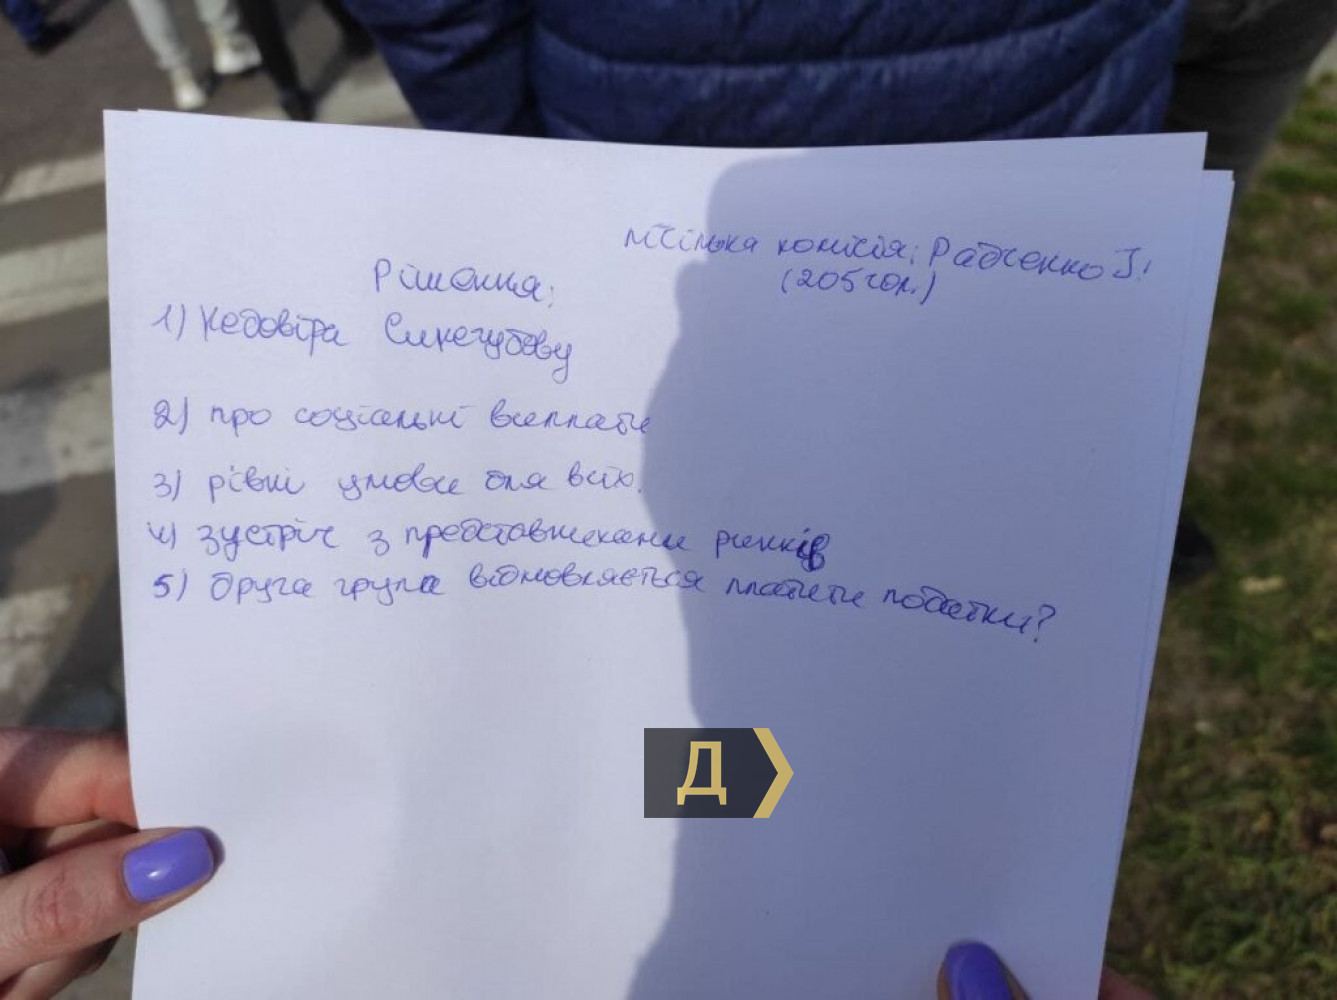 лічільна комісія: Радченко І.
(205 гол.)
Рішення:
1) Недовіра Синєгубову
2) про соціальні виплати
3) рівні умови для всіх.
4) зустріч з представниками ринків
5) друга група відмовляється платити податки?
Д